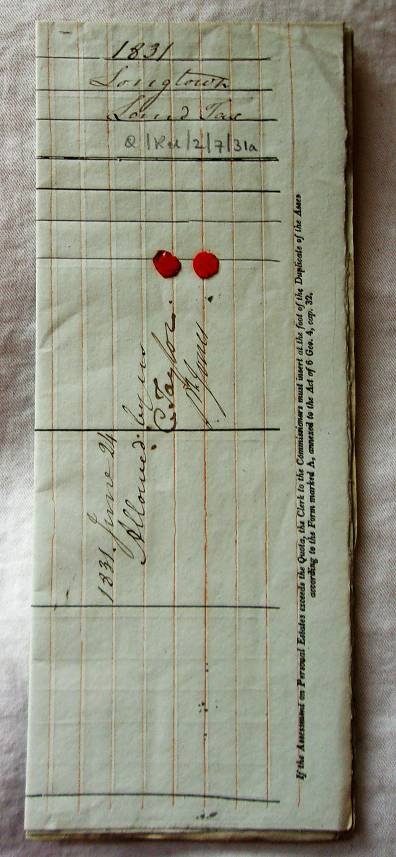 1831
Longtown
Land Tax
Q/Rel/2/7/31a
1831 June 24
Allowed by us
C Taylor.
If the Assessment on Personal Estates exceeds the Quota, the Clerk to the Commissioners must insert at the foot of the Duplicate of the Asses
according to the Form marked A, annexed to the Act of 6 Geo. 4, cap. 32.